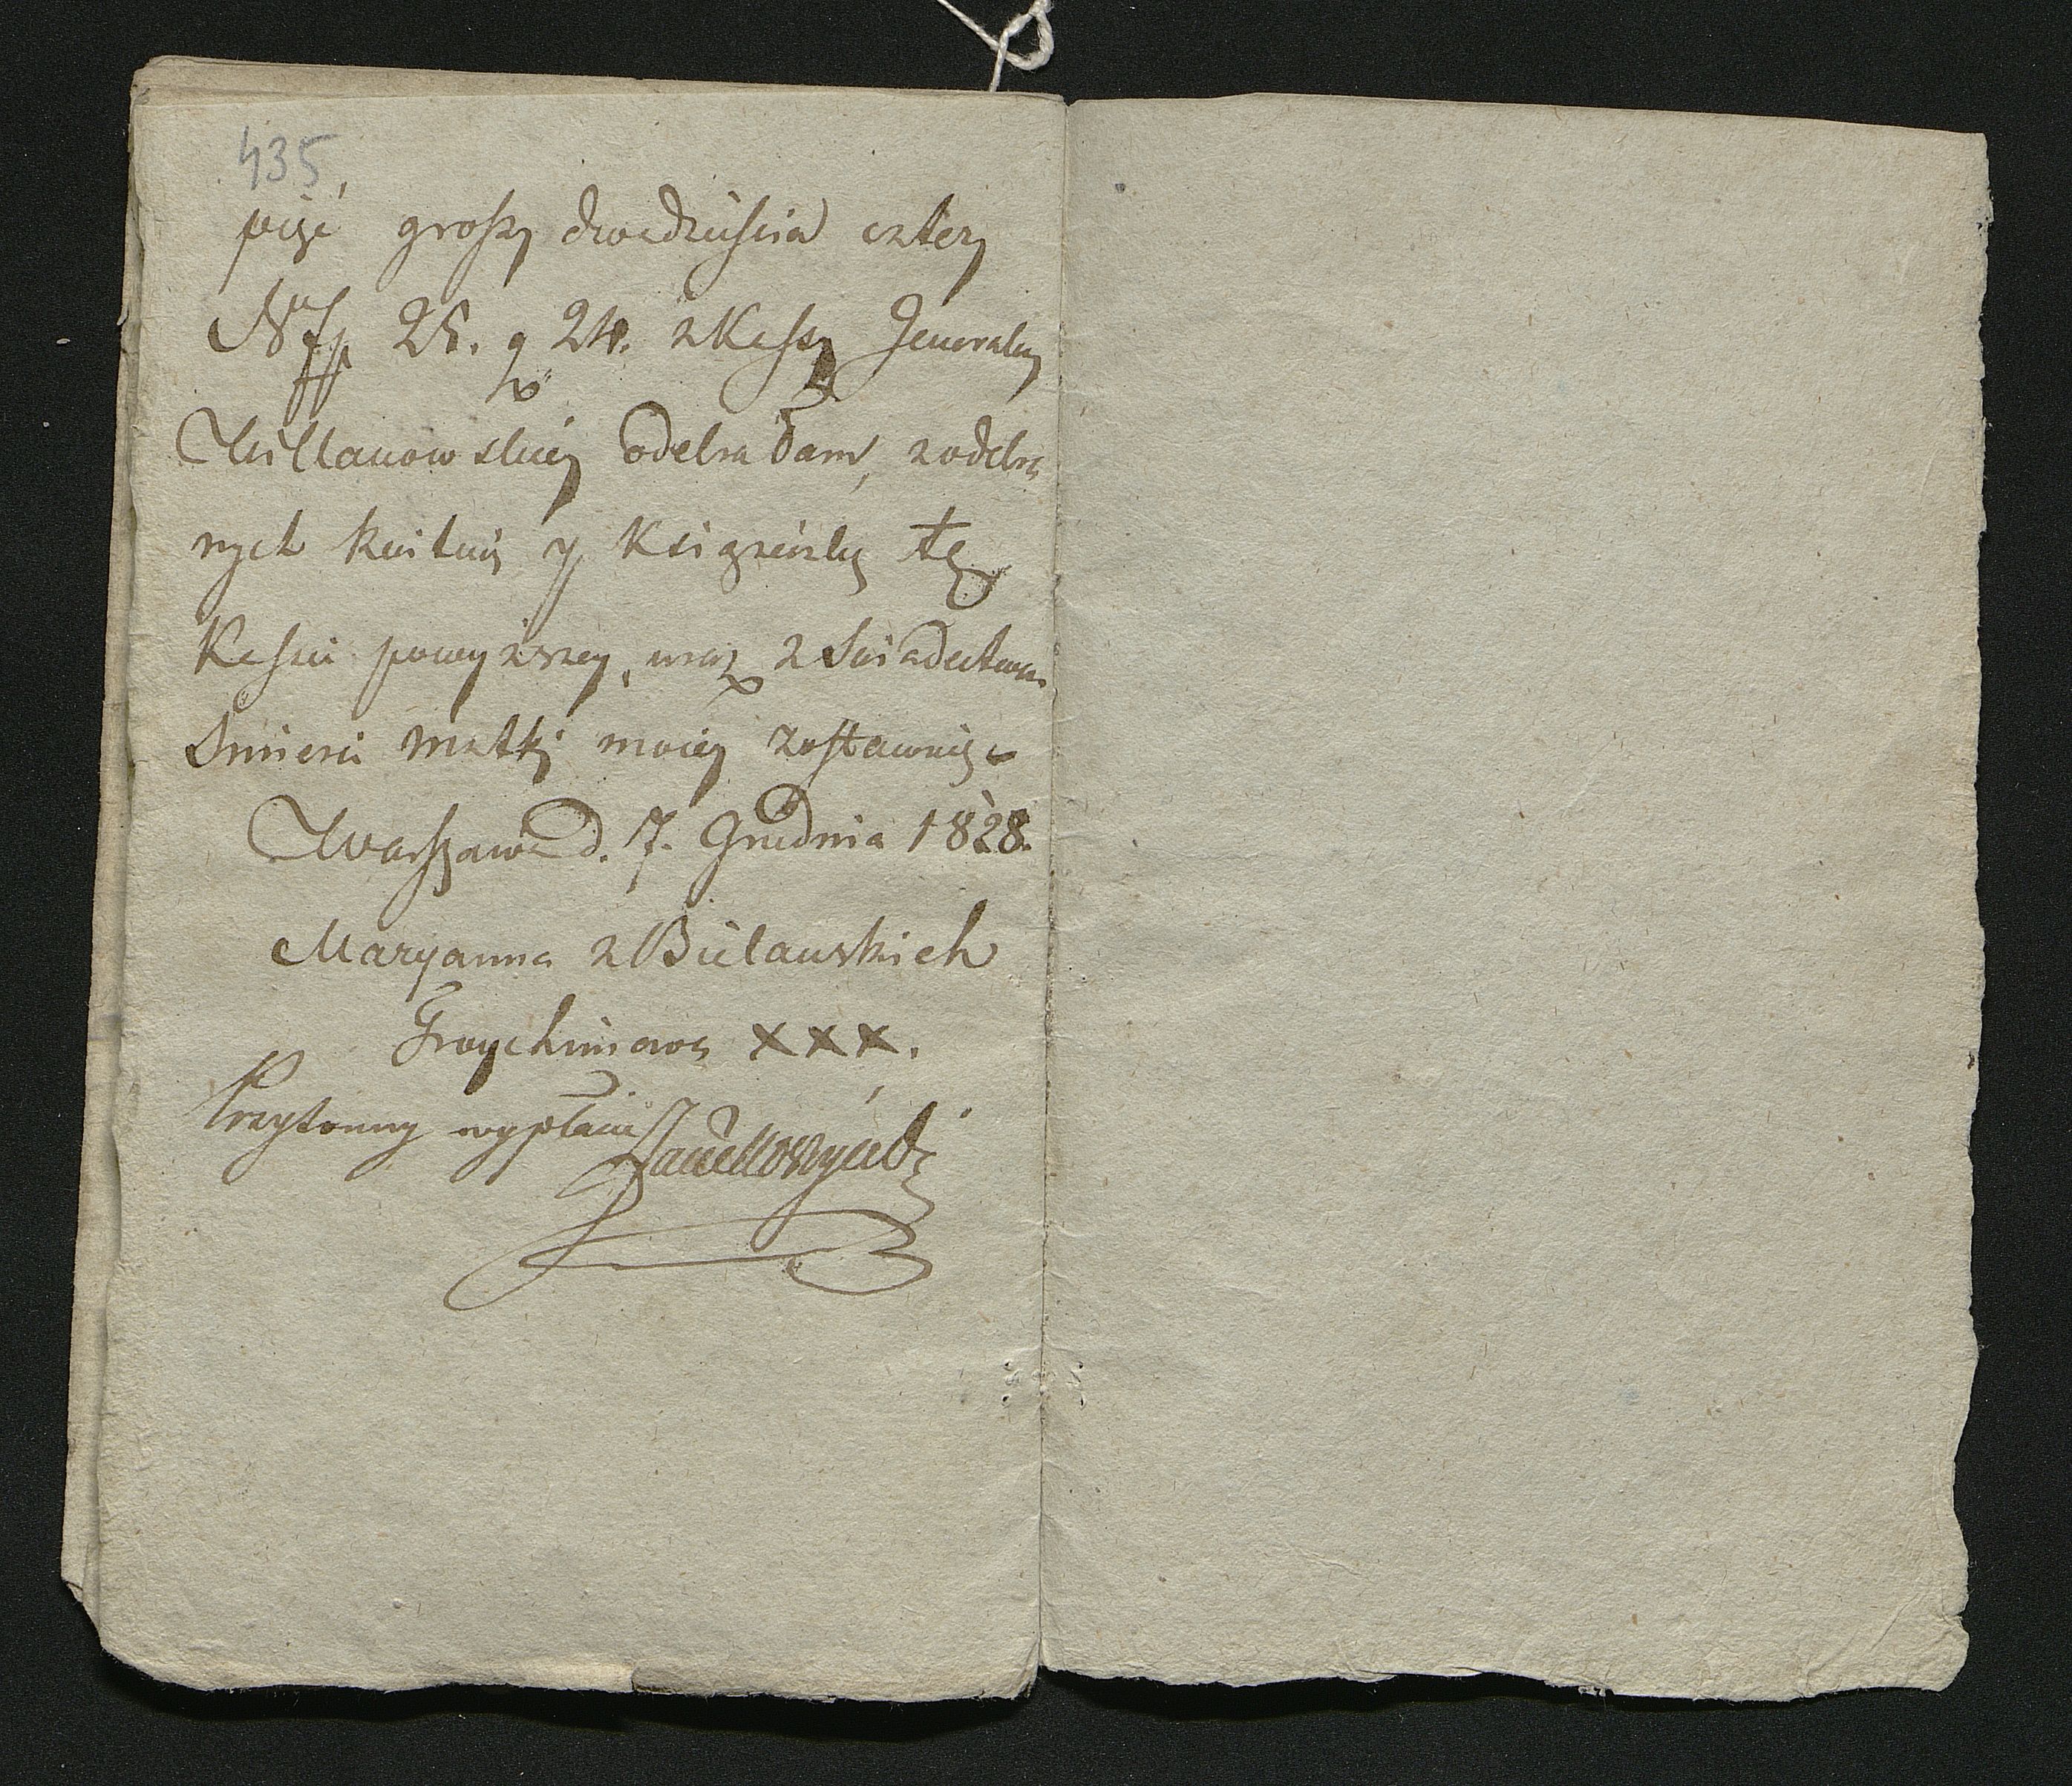 435
pięć groszy dwadzieścia cztery
N° fp 25. g 24. z Kassy Jeneralney
Willanowskiey odebrałam, z odebra
nych kwituię y Ksiązeczkę tę
Kassie powyższey, wraz z Swiadectwem
Smierci matki moiey zostawuię
Warszawa d. 7. Grudnia 1828.
Maryanna z Bielawskich
xxx.
Przytomny wypłacie